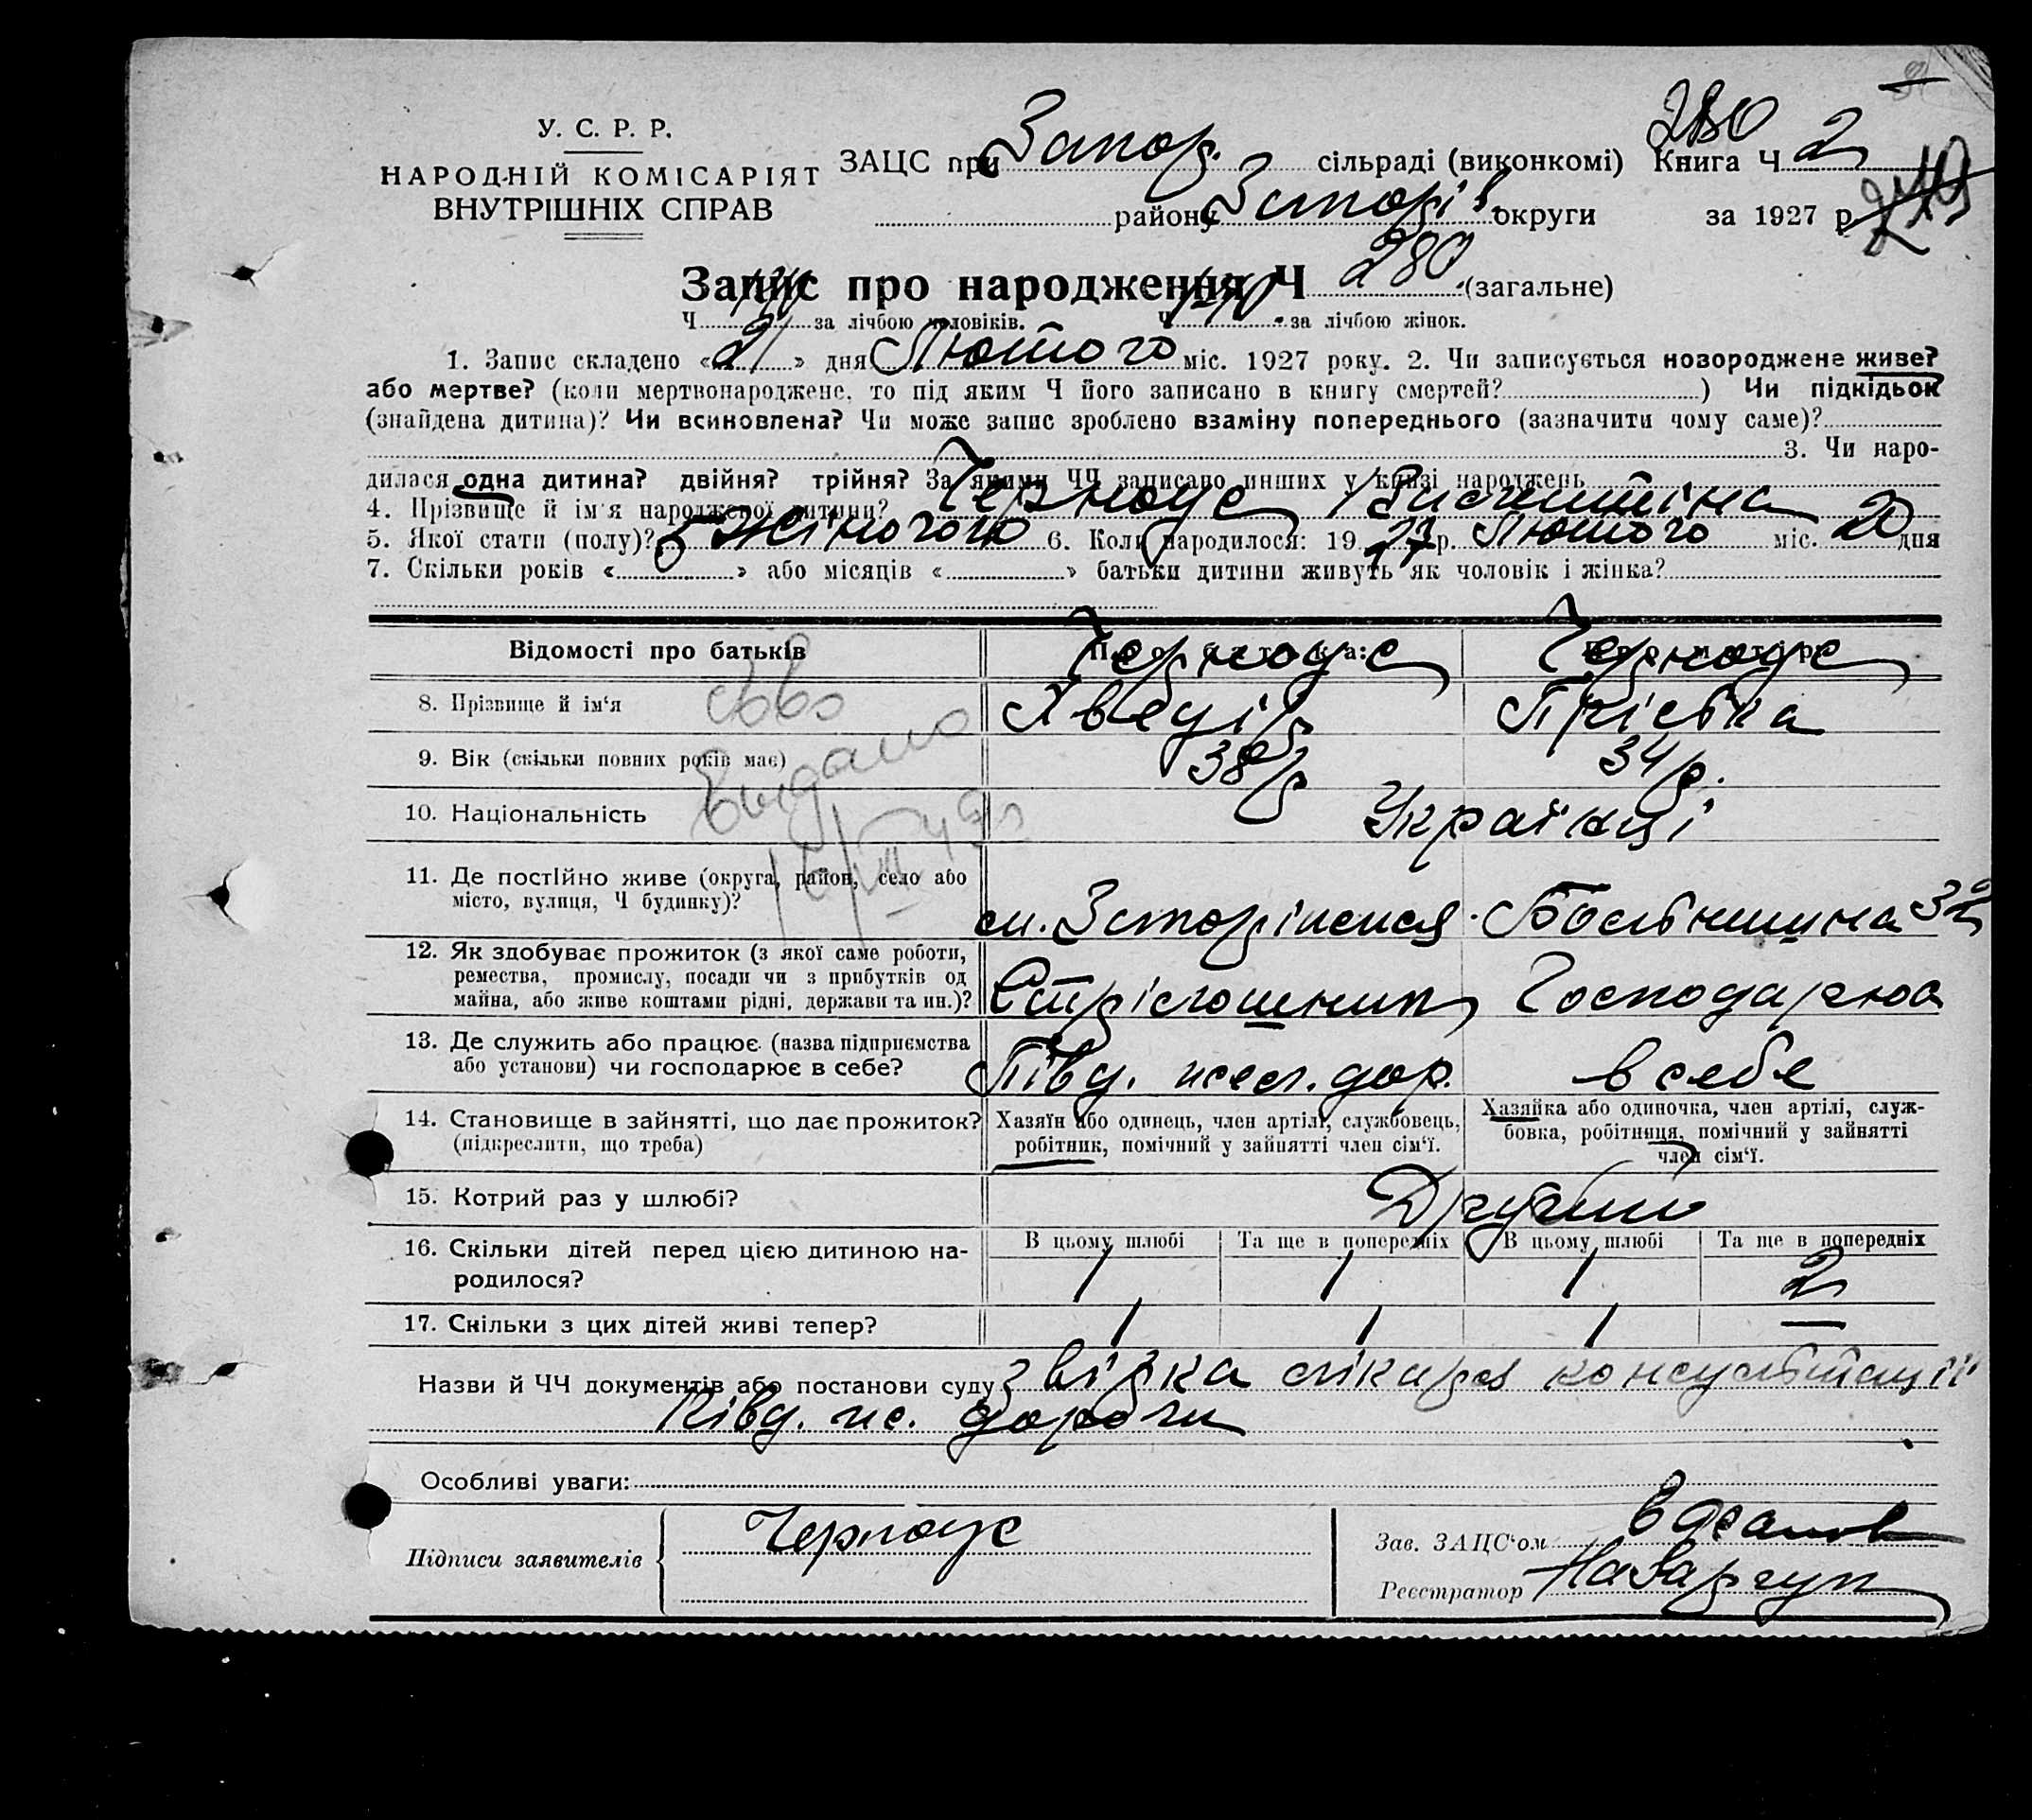 280
У. С. Р. Р.
НАРОДНІЙ КОМІСАРІЯТ
ВНУТРІШНІХ СПРАВ
ЗАЦС при Запор. сільраді (виконкомі) Книга Ч 2
району Запорів округи за 1927 р.
Запис про народження Ч 280 (загальне)
Ч за лічбою чоловіків. Ч за лічбою жінок.
1. Запис складено «21» дня Лютого міс. 1927 року. 2. Чи записується новороджене живе?
або мертве? (коли мертвонароджене, то під яким Ч його записано в книгу смертей? ) Чи підкідьок
(знайдена дитина)? Чи всиновлена? Чи може запис зроблено взаміну попереднього (зазначити чому саме)?
3. Чи наро-
дилася одна дитина? двійня? трійня? За якими ЧЧ записано инших у книзі народжень
4. Прізвище й ім'я народженої дитини? Черноус
5. Якої стати (полу)? Жіночого 6. Коли народилося: 1927 р. Лютого міс. 20 дня
7. Скільки років « » або місяців « » батьки дитини живуть як чоловік і жінка?
Відомості про батьків Про батька: Про матір:
Черноус Черноус
8. Прізвище й ім'я Хведір Пріська
9. Вік (скільки повних років має) 38 р 34 р.
10. Національність Українці
11. Де постійно живе (округа, район, село або
місто, вулиця, Ч будинку)? ст. Запоріжжя
12. Як здобуває прожиток (з якої саме роботи,
ремества, промислу, посади чи з прибутків од
майна, або живе коштами рідні, держави та ин.)? Стрілошник Господарює
13. Де служить або працює (назва підприємства
або установи) чи господарює в себе? Півд. жел. дор. в себе
14. Становище в зайнятті, що дає прожиток?
(підкреслити, що треба)
Хазяїн або одинець, член артілі, службовець,
робітник, помічний у зайнятті член сім'ї.
Хазяйка або одиночка, член артілі, служ-
бовка, робітниця, помічний у зайнятті
член сім'ї.
15. Котрий раз у шлюбі? Другий
16. Скільки дітей перед цією дитиною на-
родилося?
В цьому шлюбі Та ще в попередніх В цьому шлюбі Та ще в попередніх
1 1 1 2
17. Скільки з цих дітей живі тепер? 1 1 1 —
Назви й ЧЧ документів або постанови суду звідка лікаря консультації
Півд. ж. дороги
Особливі уваги:
Підписи заявителів Черноус
Зав. ЗАЦС'ом
Реєстратор